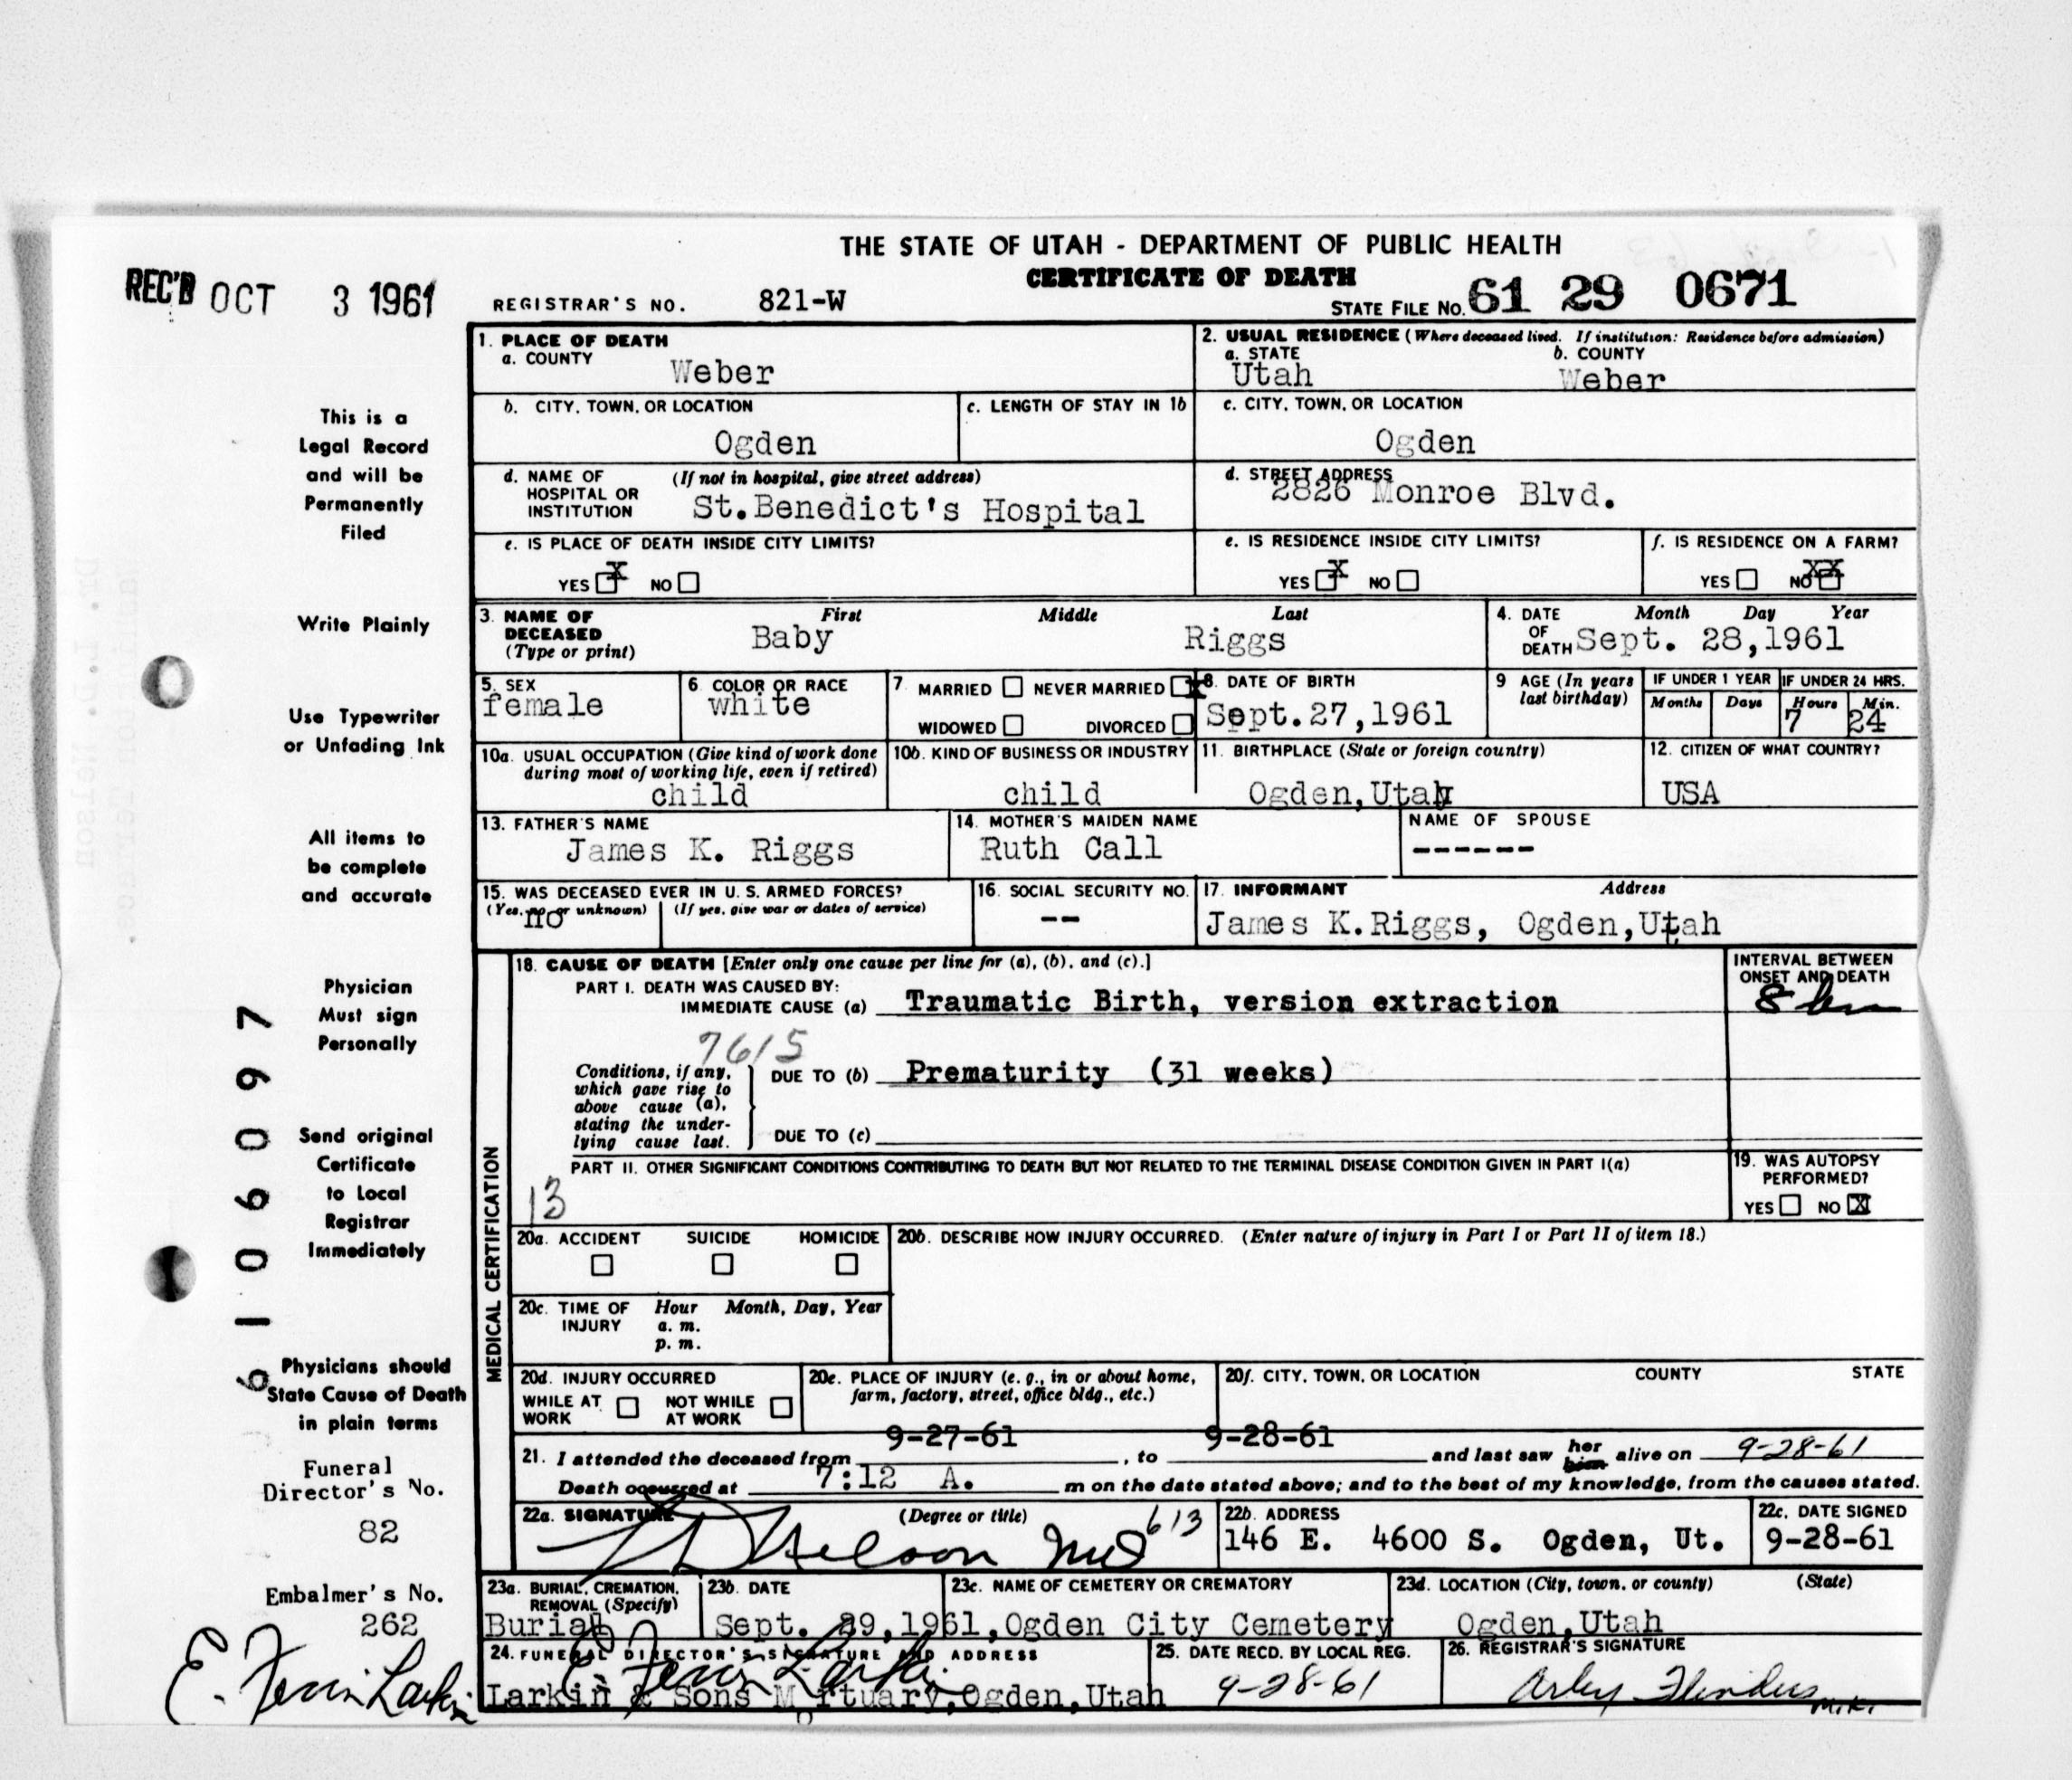 THE STATE OF UTAH - DEPARTMENT OF PUBLIC HEALTH
CERTIFICATE OF DEATH
REC'D OCT 3 1961
REGISTRAR'S NO. 821-W
STATE FILE NO. 61 29 0671
1. PLACE OF DEATH
a. COUNTY
Weber
2. USUAL RESIDENCE (Where deceased lived. If institution: Residence before admission)
a. STATE b. COUNTY
Utah Weber
b. CITY, TOWN, OR LOCATION
Ogden
c. LENGTH OF STAY IN 1b
c. CITY, TOWN, OR LOCATION
Ogden
d. NAME OF HOSPITAL OR INSTITUTION (If not in hospital, give street address)
St.Benedict's Hospital
d. STREET ADDRESS
2826 Monroe Blvd.
e. IS PLACE OF DEATH INSIDE CITY LIMITS?
YES X NO
e. IS RESIDENCE INSIDE CITY LIMITS?
YES X NO
f. IS RESIDENCE ON A FARM?
YES NO XX
3. NAME OF DECEASED (Type or print)
First Middle Last
Baby Riggs
4. DATE OF DEATH Month Day Year
Sept. 28,1961
5. SEX
female
6. COLOR OR RACE
white
7. MARRIED NEVER MARRIED X
WIDOWED DIVORCED
8. DATE OF BIRTH
Sept.27,1961
9 AGE (In years last birthday)
IF UNDER 1 YEAR IF UNDER 24 HRS.
Months Days Hours Min.
7 24
10a. USUAL OCCUPATION (Give kind of work done during most of working life, even if retired)
child
10b. KIND OF BUSINESS OR INDUSTRY
child
11. BIRTHPLACE (State or foreign country)
Ogden,Utah
12. CITIZEN OF WHAT COUNTRY?
USA
13. FATHER'S NAME
James K. Riggs
14. MOTHER'S MAIDEN NAME
Ruth Call
NAME OF SPOUSE
------
15. WAS DECEASED EVER IN U. S. ARMED FORCES?
(Yes, no, or unknown) (If yes, give war or dates of service)
no
16. SOCIAL SECURITY NO.
--
17. INFORMANT Address
James K.Riggs, Ogden,Utah
MEDICAL CERTIFICATION
18. CAUSE OF DEATH [Enter only one cause per line for (a), (b), and (c).]
INTERVAL BETWEEN ONSET AND DEATH
PART I. DEATH WAS CAUSED BY:
IMMEDIATE CAUSE (a) Traumatic Birth, version extraction
8 hr
7615
Conditions, if any, which gave rise to above cause (a), stating the underlying cause last.
DUE TO (b) Prematurity (31 weeks)
DUE TO (c)
PART II. OTHER SIGNIFICANT CONDITIONS CONTRIBUTING TO DEATH BUT NOT RELATED TO THE TERMINAL DISEASE CONDITION GIVEN IN PART I(a)
13
19. WAS AUTOPSY PERFORMED?
YES NO X
20a. ACCIDENT SUICIDE HOMICIDE
20b. DESCRIBE HOW INJURY OCCURRED. (Enter nature of injury in Part I or Part II of item 18.)
20c. TIME OF INJURY Hour Month, Day, Year
a. m.
p. m.
20d. INJURY OCCURRED
WHILE AT WORK NOT WHILE AT WORK
20e. PLACE OF INJURY (e. g., in or about home, farm, factory, street, office bldg., etc.)
20f. CITY, TOWN, OR LOCATION COUNTY STATE
21. I attended the deceased from 9-27-61, to 9-28-61 and last saw her him alive on 9-28-61
Death occurred at 7:12 A. m on the date stated above; and to the best of my knowledge, from the causes stated.
22a. SIGNATURE (Degree or title)
L D Nelson MD 613
22b. ADDRESS
146 E. 4600 S. Ogden, Ut.
22c. DATE SIGNED
9-28-61
23a. BURIAL, CREMATION, REMOVAL (Specify)
Burial
23b. DATE
Sept. 29,1961,
23c. NAME OF CEMETERY OR CREMATORY
Ogden City Cemetery
23d. LOCATION (City, town, or county) (State)
Ogden,Utah
24. FUNERAL DIRECTOR'S SIGNATURE AND ADDRESS
E. Ferrin Larkin
Larkin & Sons Mortuary,Ogden,Utah
25. DATE RECD. BY LOCAL REG.
9-28-61
26. REGISTRAR'S SIGNATURE
Arley Flinders
M.K.
This is a
Legal Record
and will be
Permanently
Filed
Write Plainly
Use Typewriter
or Unfading Ink
All items to
be complete
and accurate
Physician
Must sign
Personally
Send original
Certificate
to Local
Registrar
Immediately
Physicians should
State Cause of Death
in plain terms
61 06097
Funeral
Director's No.
82
Embalmer's No.
262
E. Ferrin Larkin